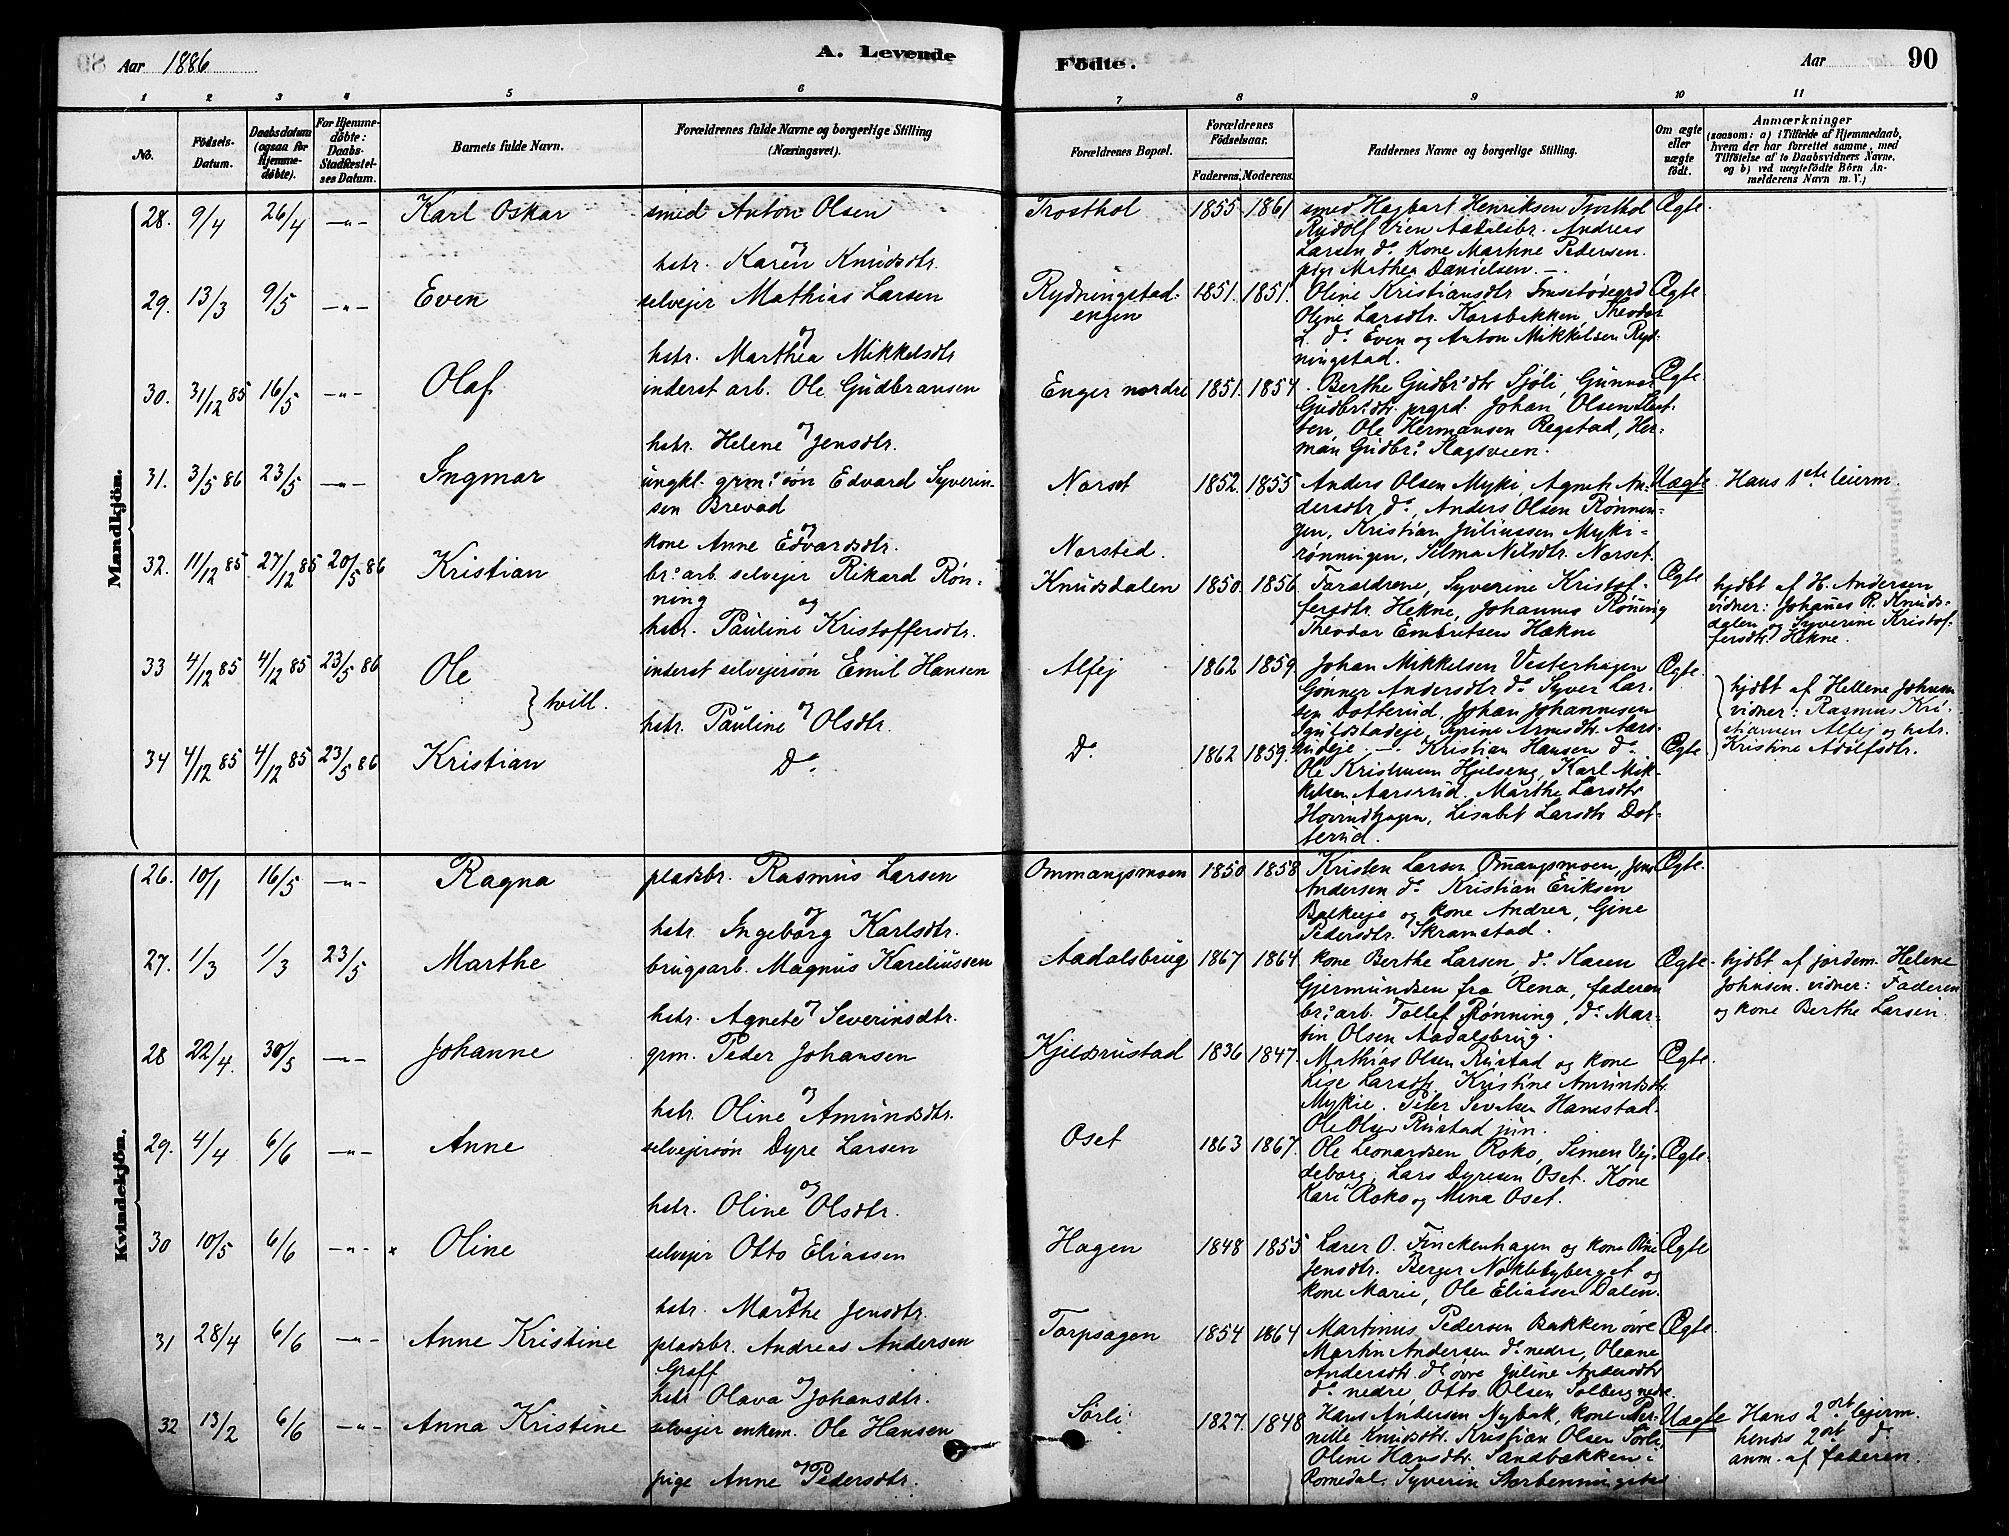 Aar 1886
A. Levende
Födte.
Aar
90
1 2 3 4 5 6 7 8 9 10 11
No.
Födsels-Datum.
Daabsdatum (ogsaa for Hjemme-döbte).
For Hjemme-döbte: Daabs-Stadfæstel-ses Datum.
Barnets fulde Navn.
Forældrenes fulde Navne og borgerlige Stilling (Næringsvei).
Forældrenes Bopæl.
Forældrenes Födselsaar.
Faderens. Moderens.
Faddernes Navne og borgerlige Stilling.
Om ægte eller uægte födt.
Anmærkninger
(saasom: a) i Tilfælde af Hjemmedaab,
hvem der har forrettet samme, med
Tilföielse af to Daabsvidners Navne,
og b) ved uægtefödte Börn An-
melderens Navn m. V.)
Mandkjön.
28. 9/4 26/4 -"- Karl Oskar smed Anton Olsen
og
hstr. Karen Knudsdtr.
Trosthol 1855 1861 smed Hagbart Henriksen Trosthol Ægte.
Rudolf Vien Aadalsbr. Andreas
Larsen do. kone Marthe Pedersen.
pige Mathea Danielsen. -.-
29. 13/3 9/5 -"- Even selvejer Mathias Larsen
og
hstr. Marthea Mikkelsdtr
Rydningstad-
engen 1851. 1851. Oline Kristiansdtr Ægte
Oline Larsdtr. Korsbakken, Theodor
L. do. Even og Anton Mikkelsen Ryd-
ningstad.
30. 31/12 85 16/5 -"- Olaf inderst arb. Ole Gudbransen
og
hstr. Helene Jensdtr.
Enger nordre 1851. 1854. Berthe Gudbr.dtr Sjöli, Gunnar Ægte
Gudbr.dtr. prgrd. Johan Olsen
Ole Hermansen Regstad, Her-
man Gudbr. Slagsveen.
31. 3/5 86 23/5 -"- Ingmar ungkl. grm. sön Edvard Syverin-
sen Brevad
og
kone Anne Edvardsdtr.
Norset
Norsted. 1852. 1855 Anders Olsen Myki, Agnete An- Uægte. Hans 1ste leierm.
dersdtr do., Anders Olsen Rønnin-
gen, Kristian Juliussen Myki-
rønningen, Selma Nilsdtr. Norset.
32. 11/12 85 27/12 85 20/5 86 Kristian br. arb. selvejer Rikard Røn-
ning
og
hstr. Pauline Kristoffersdtr.
Knudsdalen 1850. 1856. Forældrene, Syverine Kristof- Ægte
fersdtr. Hekne, Johannes Rönning
Theodor Embretsen Hækne
hjdbt af H. Andersen
vidner: Johanes R. Knuds-
dalen og Syverine Kristof-
fersdtr. Hekne.
33 4/12 85 4/12 85 23/5 86 Ole } tvill. inderst selvejersön Emil Hansen
og
hstr. Pauline Olsdtr.
Alfej 1862 1859 Johan Mikkelsen Vesterhagen Ægte.
Gønner Andersdtr do. Syver Lar-
sen Dotterud, Johan Johannesen
hjdbt af Hellene Johnsen
vidner: Rasmus Kri-
stiansen Alfej og hstr.
Kristine Adolfsdtr.
34 4/12 85 4/12 85 23/5 86 Kristian Do.
Do. 1862 1859. Kristian Hansen do. Ægte
Ole Kristiansen Hjelseng, Karl Mik-
kelsen Aarsrud. Marthe Larsdtr
Hovindhagen, Lisabet Larsdtr Dot-
terud.
Kvindekjön.
26. 10/1 16/5 -"- Ragna pladsbr. Rasmus Larsen
og
hstr. Ingeborg Karlsdtr.
Ommangsmoen 1850 1858 Kristen Larsen Omangsmoen, Jens Ægte.
Andersen do. Kristian Eriksen
Balkeeje og kone Andrea, Gine
Pedersdtr. Skramstad.
27. 1/3 1/3 23/5 Marthe brugsarb. Magnus Kareliussen
og
hstr. Agnete Severinsdtr.
Aadalsbrug 1867 1864 kone Berthe Larsen, do. Karen Ægte
Gjermundsen fra Rena, faderen
br. arb. Tollef Rønning, do. Mar-
tin Olsen Aadalsbrug.
hjdbt. af jordem. Helene
Johnsen. vidner: Faderen
og kone Berthe Larsen.
28 22/4. 30/5 -"- Johanne grm. Peder Johansen
og
hstr. Oline Amundsdtr.
Kjeldsrustad 1836 1847. Mathias Olsen Rustad og kone Ægte.
Lise Larsdtr. Kristine Amundsdtr
Mykie. Peter Sevelsen Hanestad.
Ole Olsen Rustad jun.
29. 4/4 6/6 -"- Anne selvejersön Dyre Larsen
og
hstr. Oline Olsdtr.
Oset 1863 1867. Ole Leonardsen Roko, Simen Vej- Ægte.
deborg, Lars Dyresen Oset. Kone
Kari Roko og Mina Oset.
30 10/5 6/6 -"- Oline selvejer Otto Eliassen
og
hstr. Marthe Jensdtr.
Hagen 1848 1855 Lærer O. Finckenhagen og kone Ægte
Jensdtr. Berger Nøklebyberget og
kone Marie, Ole Eliassen Dalen.
31 28/4 6/6 -"- Anne Kristine pladsbr. Andreas Andersen
Graff
og
hstr. Olava Johansdtr.
Torpsagen 1854 1864 Martinus Pedersen Bakken øvre Ægte.
Martin Andersen do. nedre, Oleane
Andersdtr do. øvre Juline Andersdtr
do. nedre Otto Olsen Solberg nedre
32 13/2 6/6 -"- Anna Kristine selvejer enkem. Ole Hansen
og
pige Anne Pedersdtr.
Sörli 1827. 1848 Hans Andersen Nybak, kone Per- Uægte Hans 2det lejerm.
nelle Knudsdtr. Kristian Olsen Sörli, hendes 2det do.
Oline Hansdtr. Sandbækken- anm. af faderen.
Romedal. Syverin